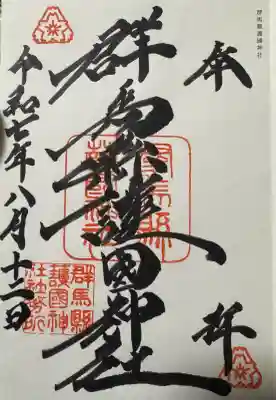 群馬縣護國神社
奉拝
群馬縣護國神社
令和七年八月十二日
群馬縣護國神社
群馬縣
護國神
社社務所